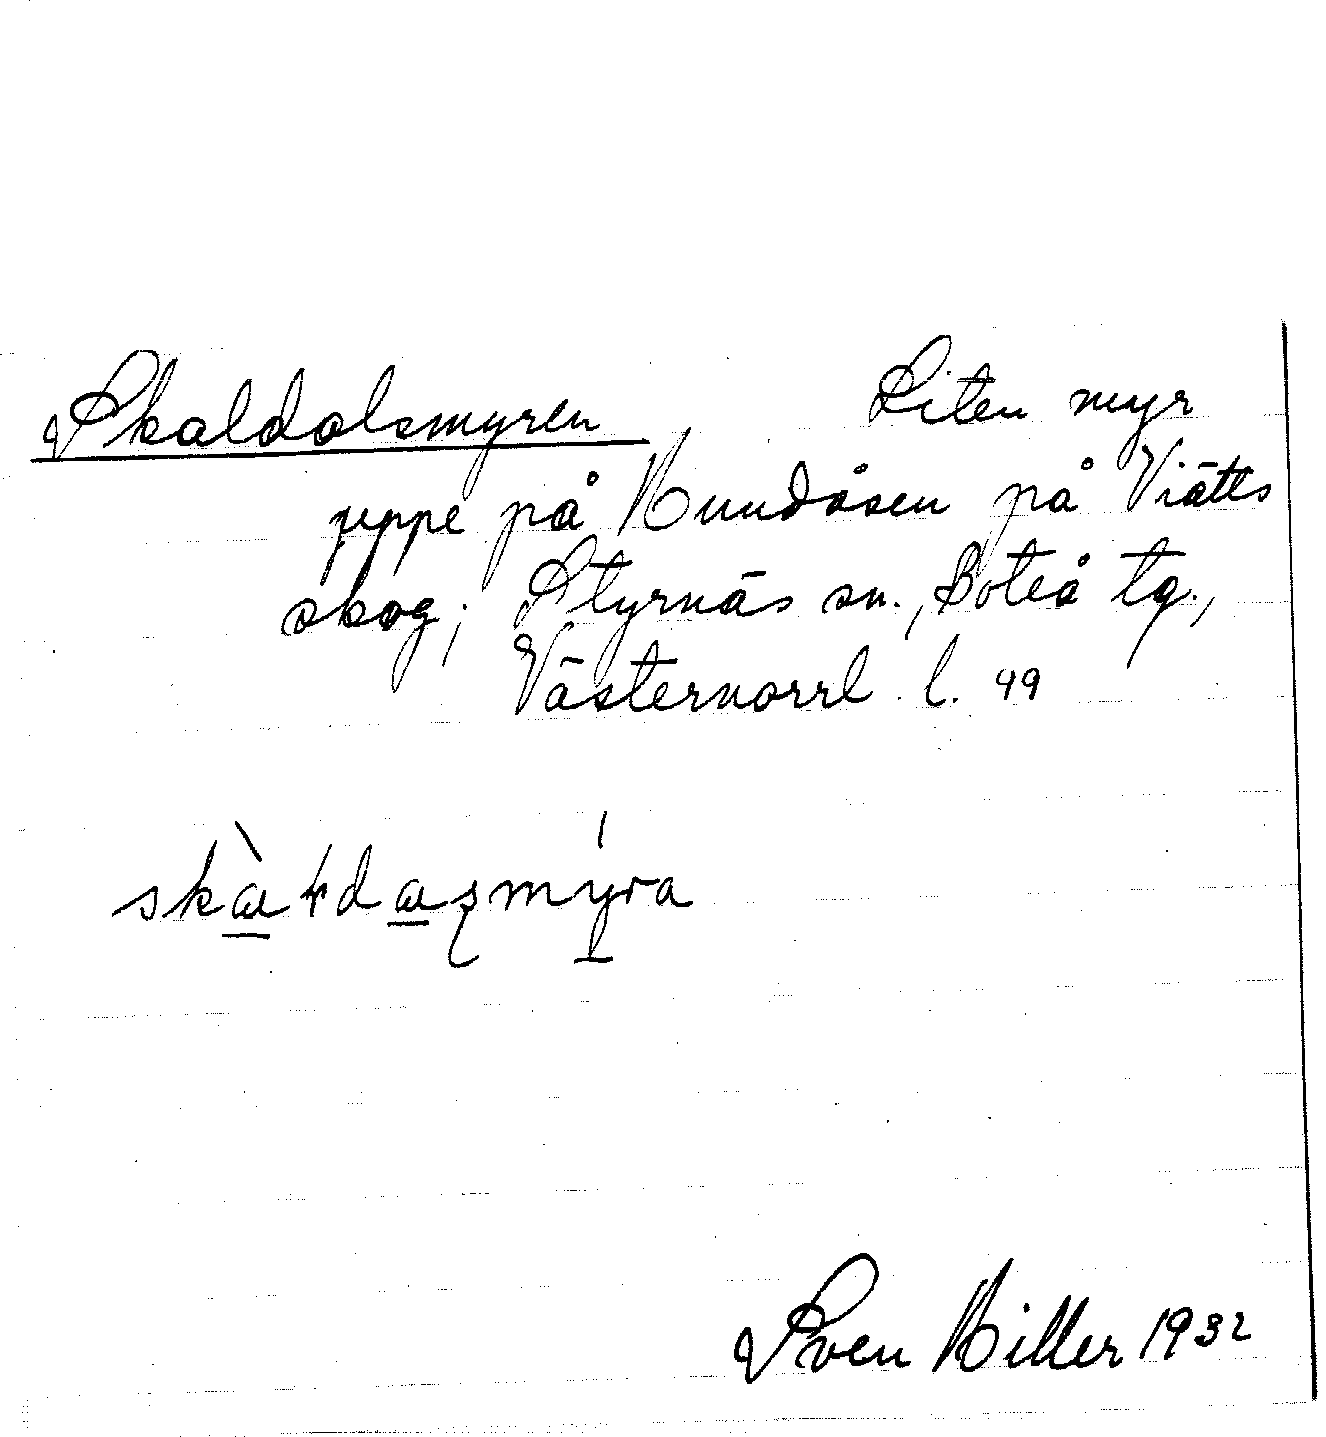 Skaldalsmyren Liten myr
uppe på Hundåsen på Viätts
skog; Styrnäs sn., Boteå tg.,
Västernorrl. l. 49
Sven Hiller 1932